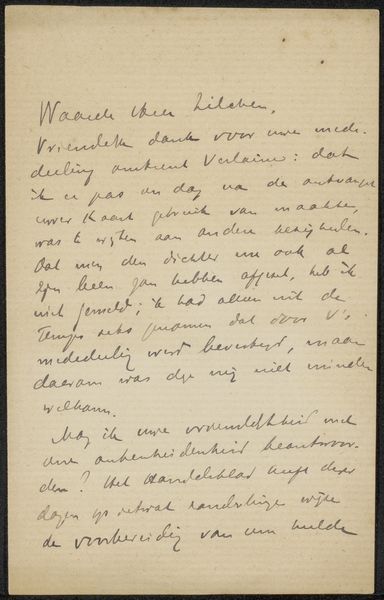 Waarde Heer Zilcken,
Vriendelijk dank voor uwe mede-
deeling omtrent Verlaine: dat
ik er pas een dag na de ontvangst
uwer kaart gebruik van maakte,
was te wijten aan andere bezigheden.
Dat men den dichter nu ook al
zijn been zou hebben afgezet, heb ik
niet gemeld; ik had alleen uit de
Temps iets genomen dat door V's
mededeeling werd bevestigd, maar
daarom was deze mij niet minder
welkom.
Mag ik uwe vriendelijkheid met
een onbescheidenheid beantwoor-
den? Het Handelsblad heeft dezer
dagen op ietwat zonderlinge wijze
de voorbereiding van een hulde